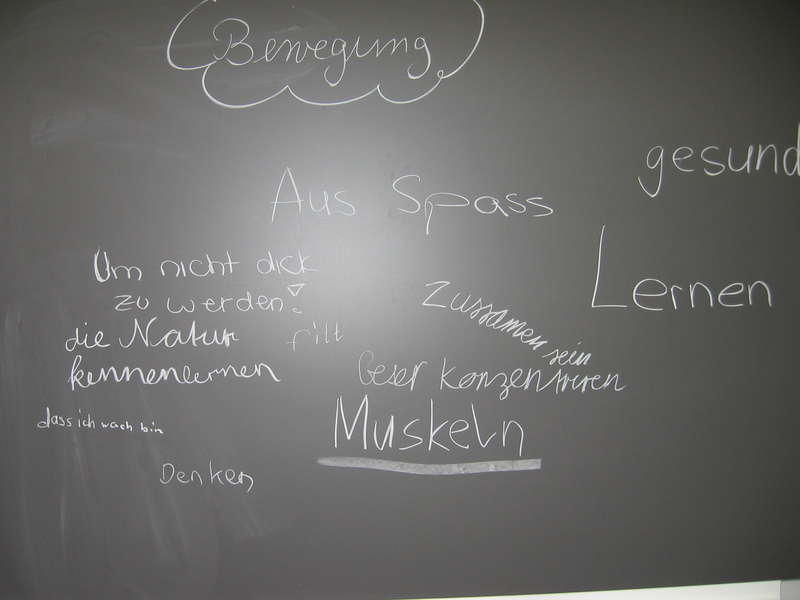 Bewegung
gesund
Aus Spass
Lernen
Um nicht dick
zu werden!
Zussamen sein
die Natur
kennenlernen
fitt
Beser konzentriren
Muskeln
dass ich wach bin
Denken